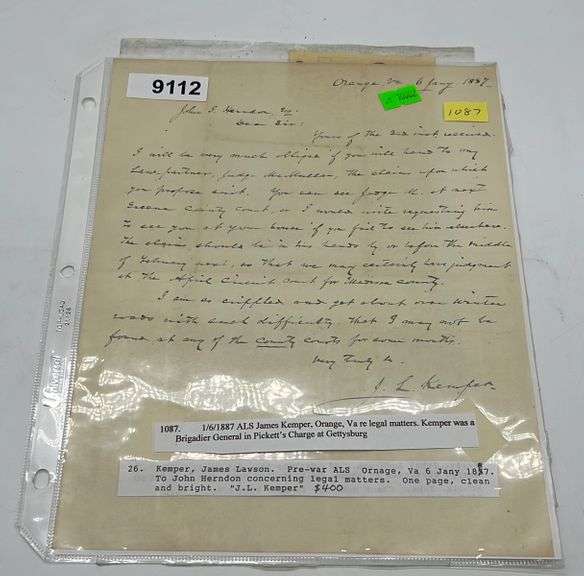 9112
Orange Va 6 Jany 1887
1087
John I. Herndon Esq
Dear Sir:
Yours of the 3rd inst received.
I will be very much obliged if you will hand to my
law partner, Judge McMullan, the claims upon which
you propose suit. You can see Judge M. at next
Greene County Court, or I would write requesting him
to see you at your house if you fail to see him elsewhere.
The claims should be in his hands by or before the middle
of February next, so that we may certainly have judgment
at the April Circuit Court for Madison county.
I am so crippled and get about over winter
roads with such difficulty, that I may not be
found at any of the county courts for some months.
Very truly &c.
J. L. Kemper
1087. 1/6/1887 ALS James Kemper, Orange, Va re legal matters. Kemper was a
Brigadier General in Pickett's Charge at Gettysburg
26. Kemper, James Lawson. Pre-war ALS Ornage, Va 6 Jany 1837.
To John Herndon concerning legal matters. One page, clean
and bright. "J.L. Kemper" $400